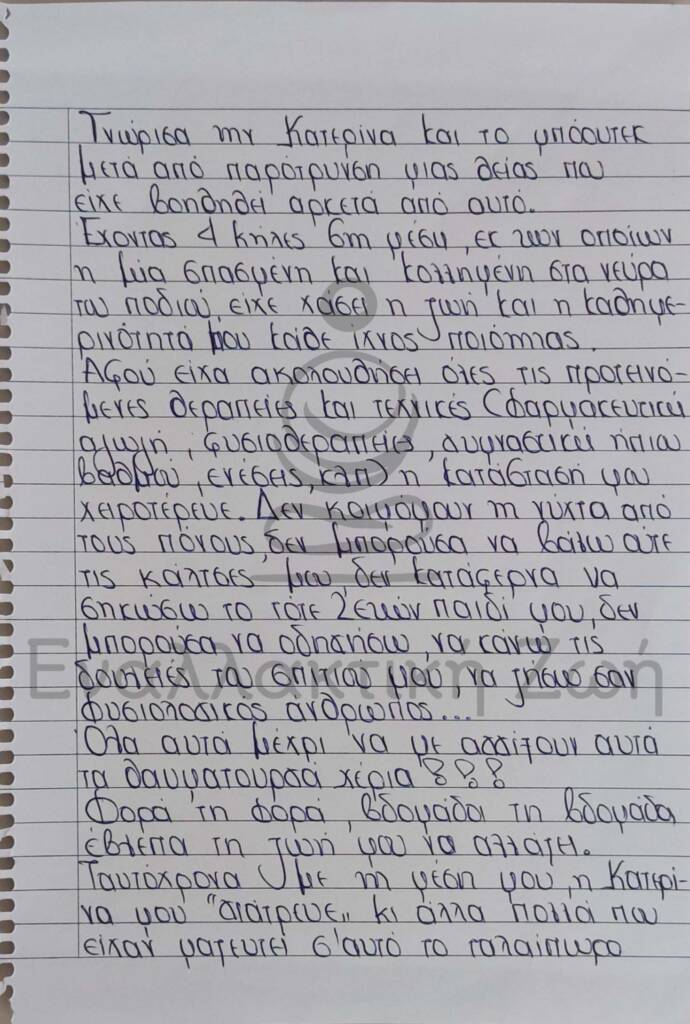 Γνώρισα την Κατερίνα και το μπόουτεκ
μετά από παρότρυνση μιας θείας που
είχε βοηθηθεί αρκετά από αυτό.
Έχοντας 4 κήλες στη μέση, εκ των οποίων
η μία σπασμένη και κολλημένη στα νεύρα
του ποδιού, είχε χάσει η ζωή και η καθημε-
ρινότητά μου κάθε ίχνος ποιότητας.
Αφού είχα ακολουθήσει όλες τις προτεινό-
μενες θεραπείες και τεχνικές (φαρμακευτική
αγωγή, φυσιοθεραπείες, γυμναστική ήπιου
βαθμού, ενέσεις, κλπ) η κατάστασή μου
χειροτέρευε. Δεν κοιμόμουν τη νύχτα από
τους πόνους, δεν μπορούσα να βάλω ούτε
τις κάλτσες μου, δεν κατάφερνα να
σηκώσω το τότε 2 ετών παιδί μου, δεν
μπορούσα να οδηγήσω, να κάνω τις
δουλειές του σπιτιού μου, να ζήσω σαν
φυσιολογικός άνθρωπος...
Όλα αυτά μέχρι να με αγγίξουν αυτά
τα θαυματουργά χέρια!!!
Φορά τη φορά, βδομάδα τη βδομάδα,
έβλεπα τη ζωή μου να αλλάζει.
Ταυτόχρονα με τη μέση μου, η Κατερί-
να μου "γιάτρευε" κι άλλα πολλά που
είχαν μαζευτεί σ'αυτό το ταλαίπωρο
Εναλλακτική Ζωή